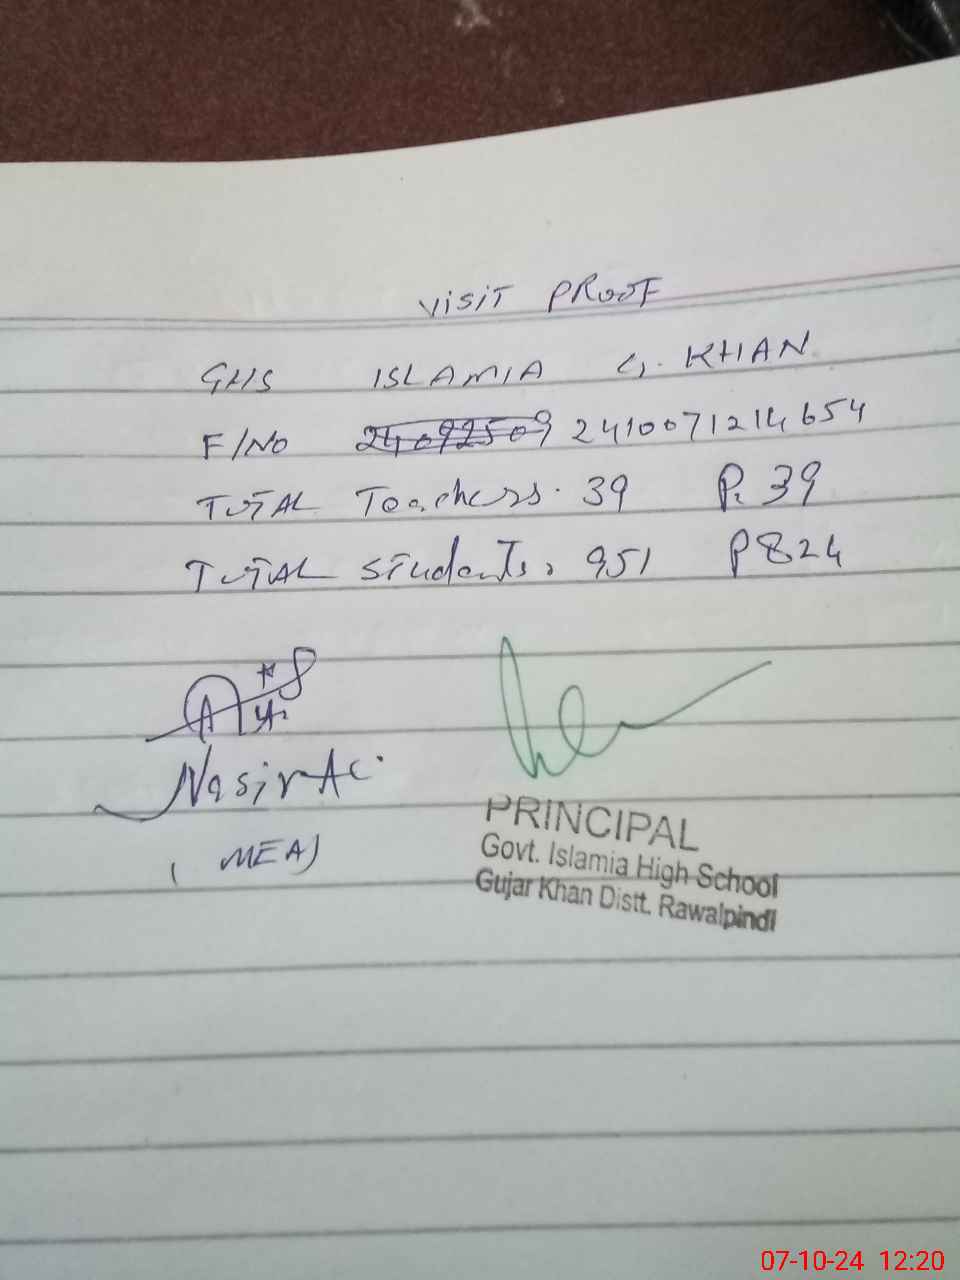 VISIT PROOF
GHS ISLAMIA G. KHAN
F/NO 24092509 2410071214654
TOTAL Teachers. 39 P. 39
TOTAL Students. 951 P 824
Nasir
(MEA)
PRINCIPAL
Govt. Islamia High School
Gujar Khan Distt. Rawalpindi
07-10-24 12:20